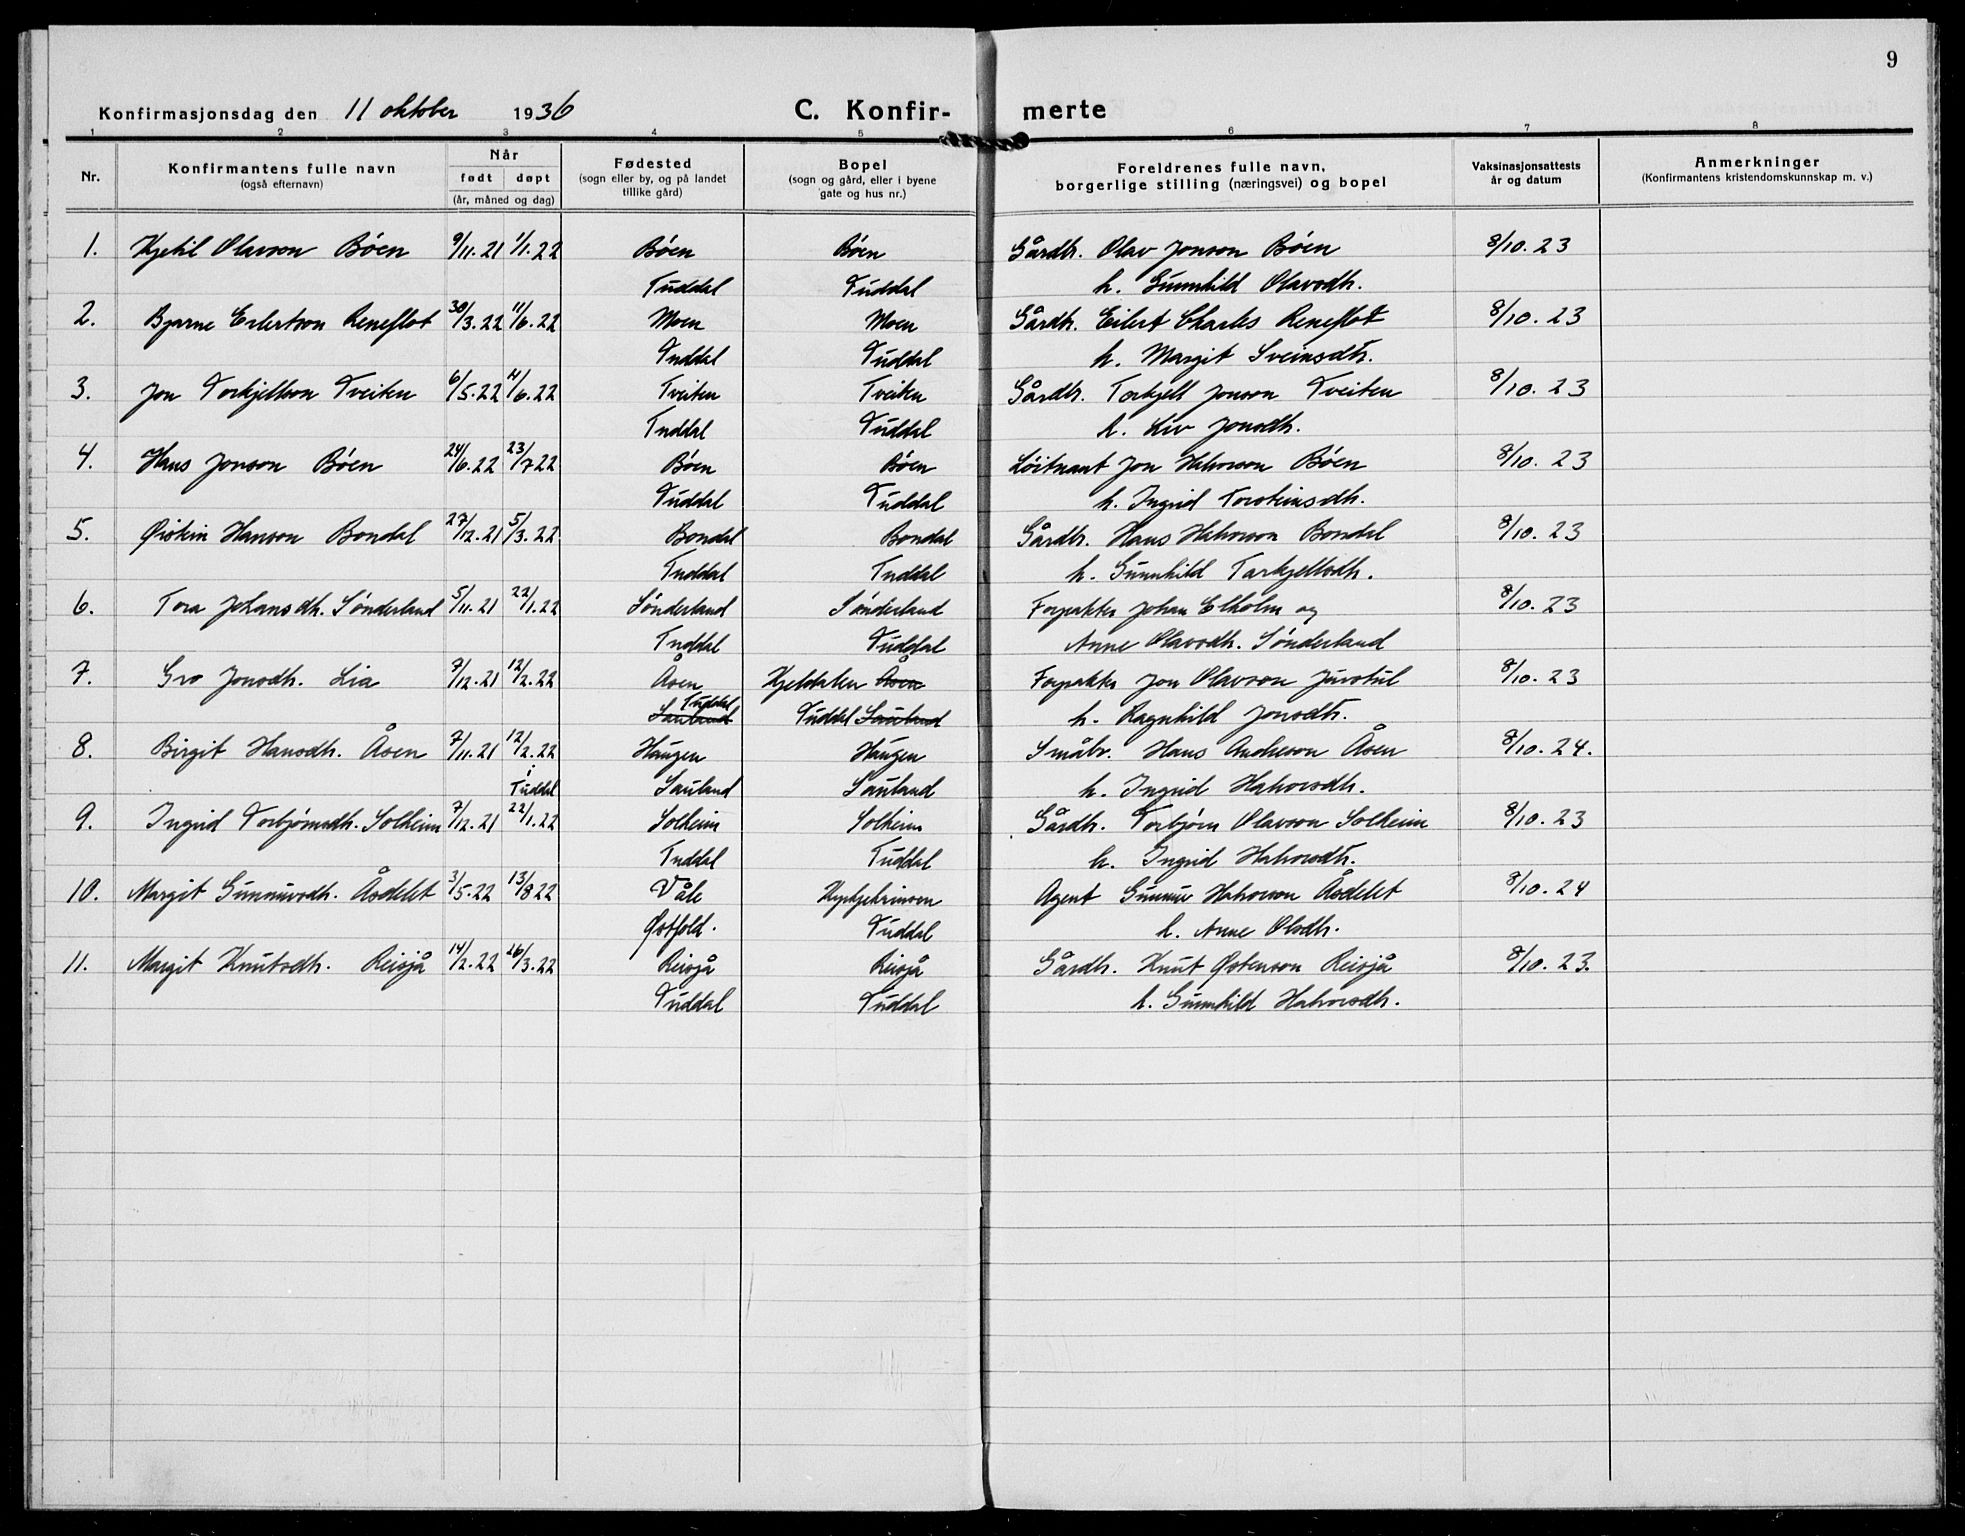 9
Konfirmasjonsdag den 11 oktober 1936 C. Konfir- merte
1 2 3 4 5 6 7 8
Nr. Konfirmantens fulle navn (også efternavn) Når født døpt (år, måned og dag) Fødested (sogn eller by, og på landet tillike gård) Bopel (sogn og gård, eller i byene gate og hus nr.) Foreldrenes fulle navn, borgerlige stilling (næringsvei) og bopel Vaksinasjonsattests år og datum Anmerkninger (Konfirmantens kristendomskunnskap m. v.)
1. Kjetil Olavson Bøen 9/11.21 1/1.22 Bøen Bøen Gårdbr. Olav Jonson Bøen 8/10.23
Tuddal Tuddal h. Gunnhild Olavsdtr.
2. Bjarne Eilertson Reneflot 30/3.22 11/6.22 Moen Moen Gårdbr. Eilert Charles Reneflot 8/10.23
Tuddal Tuddal h. Margit Sveinsdtr.
3. Jon Torkjellson Tveiten 6/5.22 11/6.22 Tveiten Tveiten Gårdbr. Torkjell Jonson Tveiten 8/10.23
Tuddal Tuddal h. Liv Jonsdtr.
4. Hans Jonson Bøen 24/6.22 23/7 22 Bøen Bøen Løitnant Jon Halvorson Bøen 8/10.23
Tuddal Tuddal h. Ingrid Torsteinsdtr.
5. Øistein Hanson Bondal 27/12.21 5/3.22 Bondal Bondal Gårdbr. Hans Halvorson Bondal 8/10.23
Tuddal Tuddal h. Gunnhild Tarkjellsdtr.
6. Tora Johansdtr. Sønderland 5/11.21 22/1.22 Sønderland Sønderland Forpakter Johan Elholm og 8/10.23
Tuddal Tuddal Anne Olavsdtr. Sønderland
7. Gro Jonsdtr. Lia 7/12.21 12/2.22 Åsen Kjeldalen Åsen Forpakter Jon Olavson Jurstul 8/10.23
Tuddal Sauland Tuddal Sauland h. Ragnhild Jonsdtr.
8. Birgit Hansdtr. Åsen 7/11.21 12/2.22 Haugen Haugen Småbr. Hans Andreson Åsen 8/10.24.
i Tuddal Sauland Sauland h. Ingrid Halvorsdtr.
9. Ingrid Torbjørnsdtr. Solheim 7/12.21 22/1.22 Solheim Solheim Gårdbr. Torbjørn Olavson Solheim 8/10.23
Tuddal Tuddal h. Ingrid Halvorsdtr.
10. Margit Gunnuvsdtr. Åsdelet 3/5.22 13/8 22 Våle Agent Gunnuv Halvorson Åsdelet 8/10.24
Østfold. Tuddal h. Anne Olsdtr.
11. Margit Knutsdtr. Reisjå 14/2.22 26/3.22 Reisjå Reisjå Gårdbr. Knut Østenson Reisjå 8/10.23.
Tuddal Tuddal h. Gunnhild Halvorsdtr.